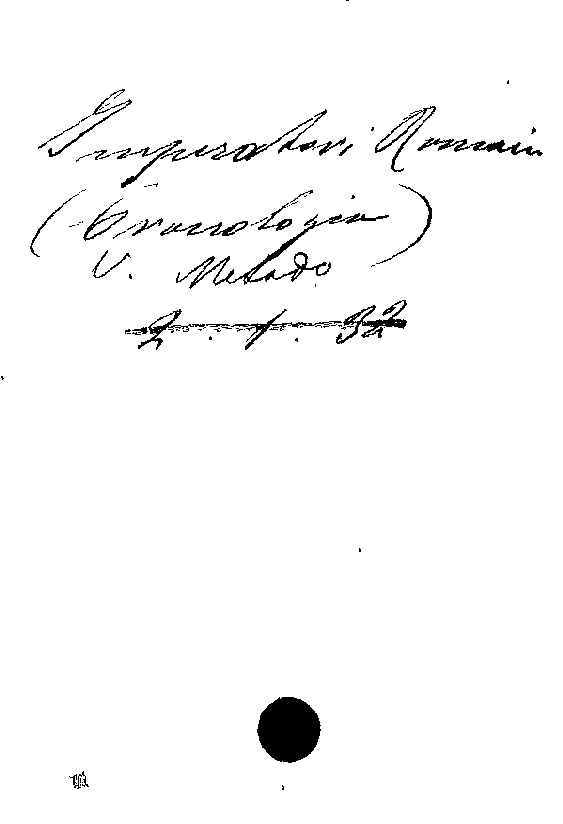 Imperatori Romani
(Cronologia)
V. Metodo
2. 1. 32